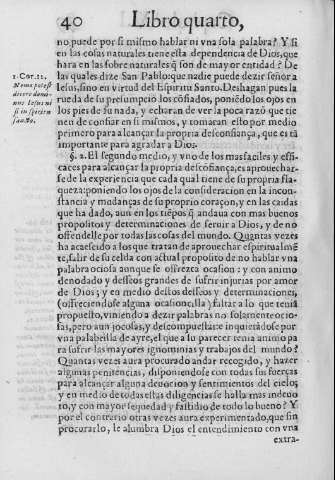 40 Libro quarto,
no puede por si mismo hablar ni vna sola palabra? Y si
en las cosas naturales tiene esta dependencia de Dios, que
hara en las sobre naturales q̃ son de mayor entidad? De
1. Cor. 12.
las quales dize San Pablo: que nadie puede dezir señor a
Nemo potest
Iesus, sino en virtud del Espiritu Santo. Deshagan pues la
dicere domi-
rueda de su presumpciõ los cõfiados, poniẽdo los ojos en
nus Iesus ni
los pies de su nada, y echaran de ver la poca razõ que tie
si in spiritu
nen de confiar en si mismos, y tomaran esto por medio
sancto.
primero para alcançar la propria desconfiança, que es tã
importante para agradar a Dios.
§. 2. El segundo medio, y vno de los mas faciles y effi-
caces para alcançar la propria descõfiança, es aprouechar-
se de la experiencia que cada qual tiene de su propria fla-
queza: poniendo los ojos de la consideracion en la incon-
stancia y mudanças de su proprio coraçon, y en las caidas
que ha dado, aun en los tiẽpos q̃ andaua con mas buenos
propositos y determinaciones de seruir a Dios, y de no
offendelle por todas las cosas del mundo. Quantas vezes
ha acaescido a los que tratan de aprouechar espiritualmẽ
te, salir de su celda con actual proposito de no hablar vna
palabra ociosa aunque se offrezca ocasion: y con animo
denodado y desseos grandes de sufrir injurias por amor
de Dios; y en medio destos desseos y determinaciones,
(offreciendose alguna ocasioncilla) faltar a lo que teniã
propuesto, viniendo a dezir palabras no solamente ocio-
sas, pero aun jocosas, y descompuestas: e inquietãdose por
vna palabrilla de ayre, el que a lo parecer tenia animo pa
ra sufrir las mayores ignominias y trabajos del mundo?
Quantas vezes aura procurado andar recogido, y hazer
algunas penitencias, disponiendose con todas sus fuerças
para alcançar alguna deuocion y sentimientos del cielo;
y en medio de todas estas diligencias se halla mas indeuo
to, y con mayor sequedad y fastidio de todo lo bueno? Y
por el contrario otras vezes aura experimentado, que sin
procurarlo, le alumbra Dios el entendimiento con vna
extra-